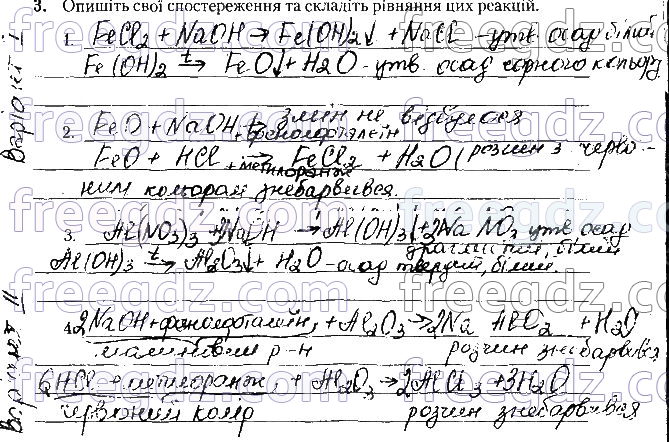 3. Опишіть свої спостереження та складіть рівняння цих реакцій.
Варіант I
1. FeCl2 + NaOH → Fe(OH)2↓ + NaCl - утв осад білий
Fe(OH)2 t→ FeO↓ + H2O - утв. осад чорного кольору
2. FeO + NaOH + фенолфталеїн змін не відбулося
FeO + HCl + метилоранж FeCl2 + H2O (розчин з черво-
ним кольором знебарвився.
3. Al(NO3)3 + NaOH → Al(OH)3↓ + Na NO3 утв осад
драглистий, білий
Al(OH)3 t→ Al2O3↓ + H2O - осад твердий, білий.
Варіант II
4. 2NaOH + фенолфталеїн, + Al2O3 → 2Na AlO2 + H2O
малиновий р-н розчин знебарвивсв
6HCl + метилоранж, + Al2O3 → 2AlCl3 + 3H2O
червоний колір розчин знебарвився
freegdz.com